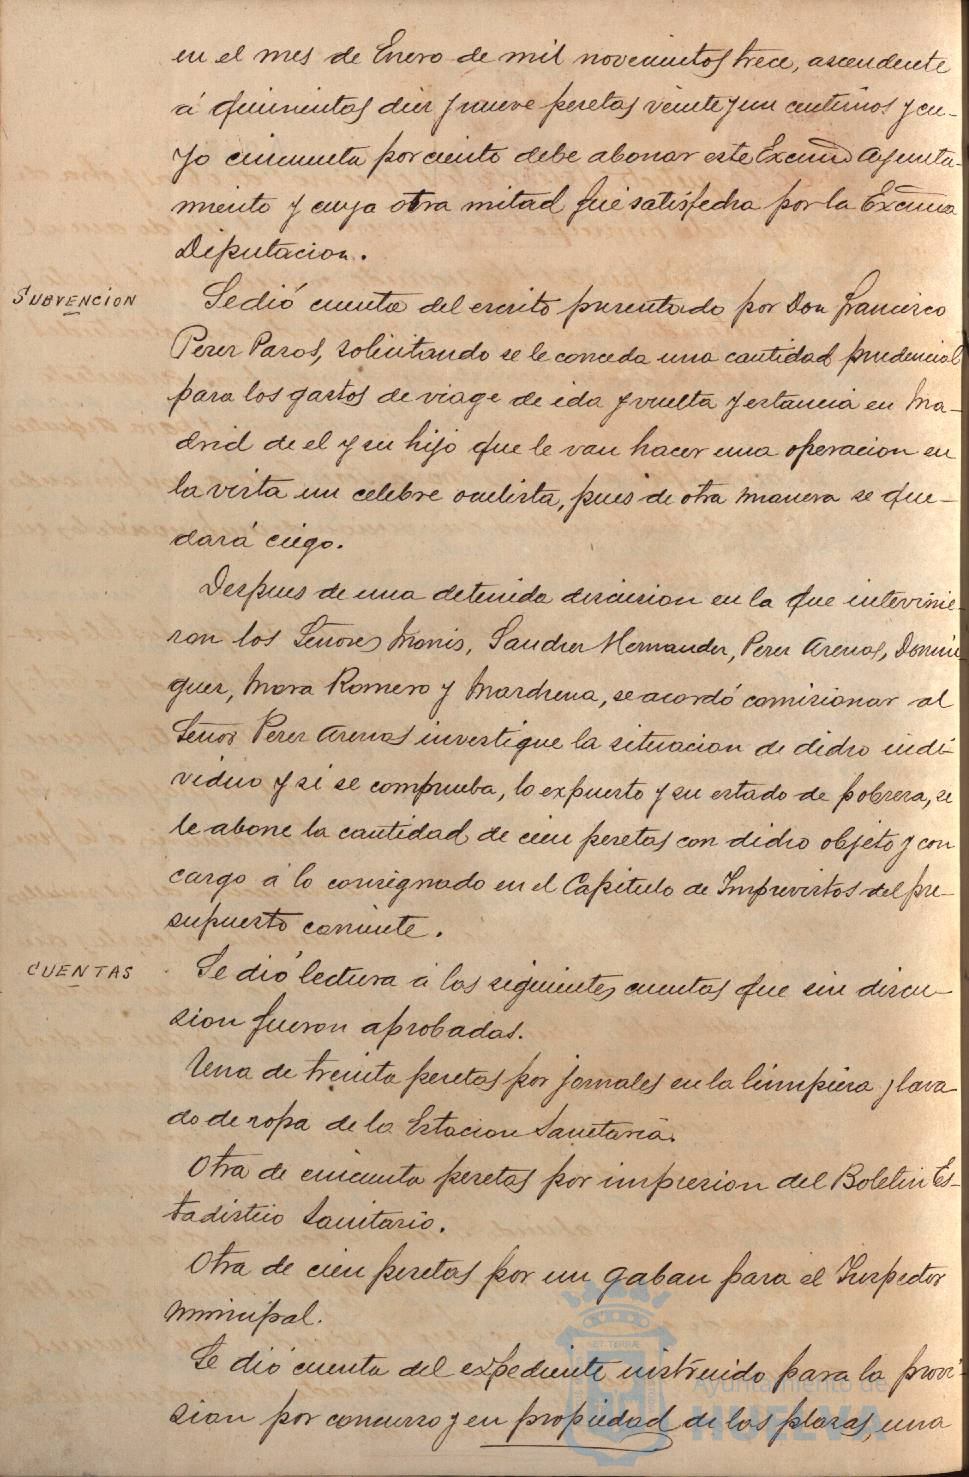 en el mes de Enero de mil novecientos trece, ascendente
á quinientas diez y nueve pesetas veinte y un centimos y cu-
yo cincuenta por ciento debe abonar este Excmo Ayunta-
miento y cuya otra mitad fué satisfecha por la Excma
Diputacion.
SUBVENCION
Se dió cuenta del escrito presentado por Don Francisco
Perez Pazos, solicitando se le conceda una cantidad prudencial
para los gastos de viage de ida y vuelta y estancia en Ma-
drid de el y su hijo que le van hacer una operacion en
la vista un celebre oculista, pues de otra manera se que-
dará ciego.
Despues de una detenida discusion en la que intervinie-
ron los Señores Monis, Sanchez Hernandez, Perez Arenas, Domin
guez, Mora Romero y Marchena, se acordó comisionar al
Señor Perez Arenas investigue la situacion de dicho indi-
viduo y si se comprueba, lo expuesto y su estado de pobreza, se
le abone la cantidad de cien pesetas con dicho objeto y con
cargo á lo consignado en el Capitulo de Imprevistos del pre-
supuesto corriente.
CUENTAS
Se dió lectura á las siguientes cuentas que sin discu-
sion fueron aprobadas.
Una de treinta pesetas por jornales en la limpieza y lava
do de ropa de la Estacion Sanitaria.
Otra de cincuenta pesetas por impresion del Boletin Es-
tadistico Sanitario.
Otra de cien pesetas por un gaban para el Inspector
municipal.
Se dió cuenta del expediente instruido para la provi-
sion por concurso y en propiedad de las plazas, una
Ayuntamiento de
HUELVA